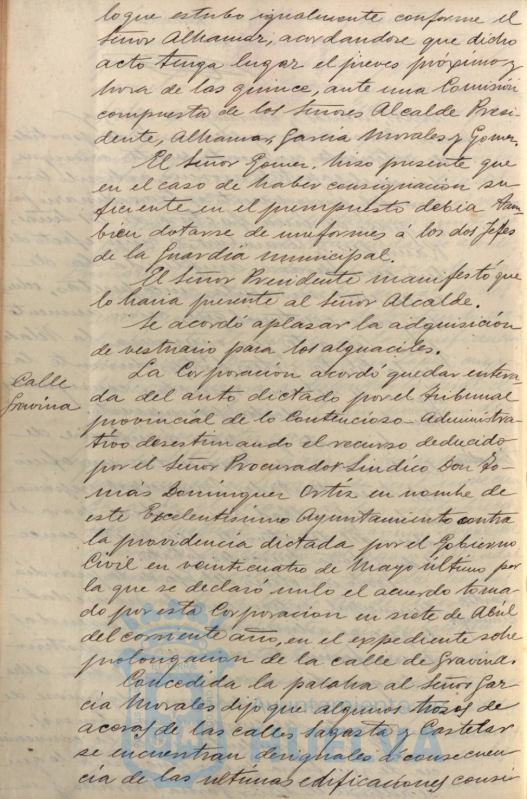 loque estubo igualmente conforme el
Señor Alhamar, acordandose que dicho
acto tenga lugar el jueves próximo y
hora de las quince, ante una Comisión
compuesta de los Señores Alcalde Presi
dente, Alhamar, García Morales y Gomez.
El Señor Gomez, hizo presente que
en el caso de haber consignación su
ficiente en el presupuesto debia tam
bien dotarse de uniformes á los dos Jefes
de la Guardia municipal.
El Señor Presidente manifestó que
lo haria presente al Señor Alcalde.
Se acordó aplazar la adquisición
de vestuario para los alguaciles.
Calle
Gravina
La Corporación acordó quedar entera
da del auto dictado por el Tribunal
provincial de lo Contencioso-Administra
tivo desestimando el recurso deducido
por el Señor Procurador Sindico Don To-
más Dominguez Ortíz en nombre de
este Excelentisimo Ayuntamiento contra
la providencia dictada por el Gobierno
Civil en veinticuatro de Mayo último por
la que se declaró nulo el acuerdo toma-
do por esta Corporacion en siete de Abril
del corriente año, en el expediente sobre
prolongación de la calle de Gravina.
Concedida la palabra al Señor Gar
cia Morales dijo que algunos trozos de
aceras de las calles Sagasta y Castelar
se encuentran desiguales á consecuen
cia de las ultimas edificaciones consi
HUELVA